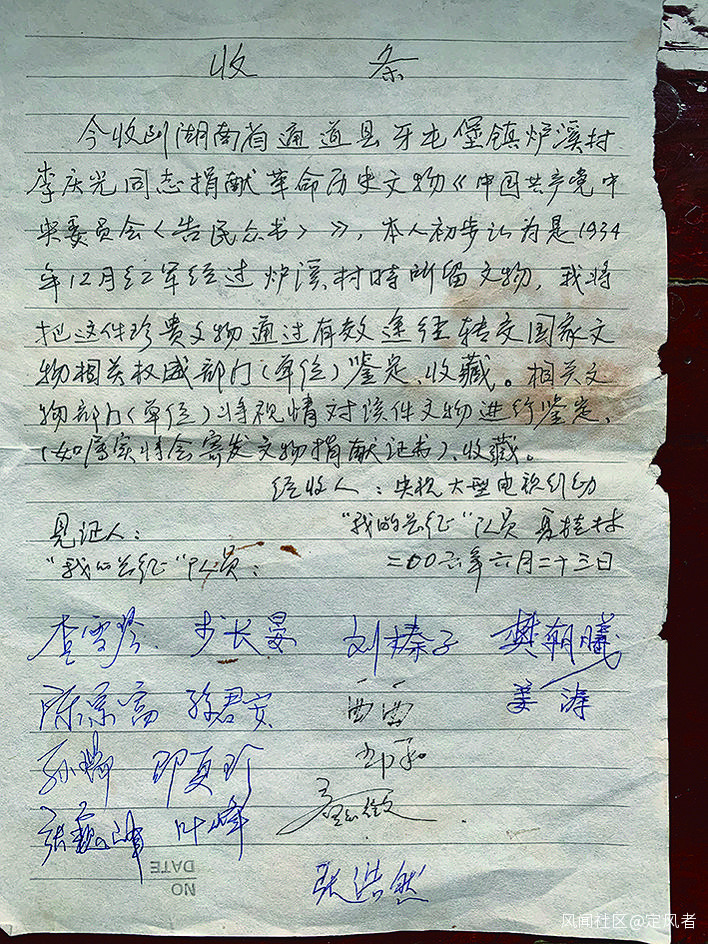 收 条
今收到湖南省通道县牙屯堡镇炉溪村
李庆光同志捐献革命历史文物《中国共产党中
央委员会〈告民众书〉》，本人初步认为是1934
年12月红军经过炉溪村时所留文物，我将
把这件珍贵文物通过有效途径转交国家文
物相关权威部门（单位）鉴定、收藏。相关文
物部门（单位）将视情对该件文物进行鉴定、
（如属实将会寄发文物捐献证书）、收藏。
经收人：央视大型电视行动
见证人： “我的长征”队员 夏桂林
“我的长征”队员： 二00六年六月二十三日
李雪琴 步长晏 刘榛子 樊朝曦
陈崇富 徐君安 西西 姜涛
孙娜
张巍峰 叶峰
NO
DATE
张浩然
风闻社区@定风者